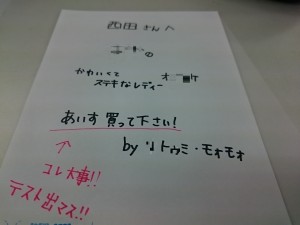 西田さんへ
かわいくて
ステキなレディー
あいす買って下さい!
by リトゥミ・モォモォ
↑
コレ大事!!
テスト出マス!!